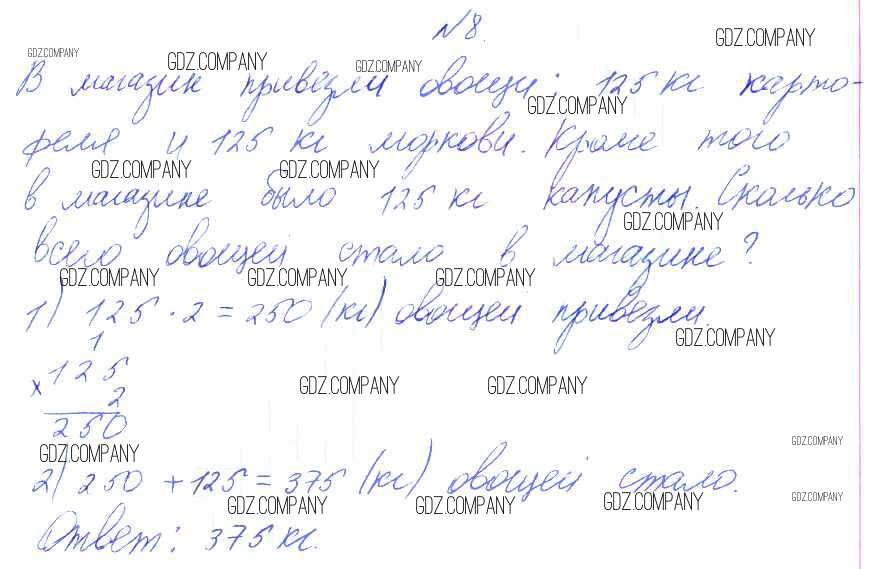 №8.
GDZ.COMPANY
GDZ.COMPANY GDZ.COMPANY GDZ.COMPANY
В магазин привезли овощи: 125 кг карто-
GDZ.COMPANY
феля и 125 кг моркови. Кроме того
GDZ.COMPANY GDZ.COMPANY
в магазине было 125 кг капусты. Сколько
GDZ.COMPANY
всего овощей стало в магазине?
GDZ.COMPANY GDZ.COMPANY GDZ.COMPANY
1) 125 · 2 = 250 (кг) овощей привезли.
GDZ.COMPANY
1
× 125
GDZ.COMPANY GDZ.COMPANY
2
250
GDZ.COMPANY GDZ.COMPANY
2) 250 + 125 = 375 (кг) овощей стало.
GDZ.COMPANY GDZ.COMPANY GDZ.COMPANY GDZ.COMPANY
Ответ: 375 кг.